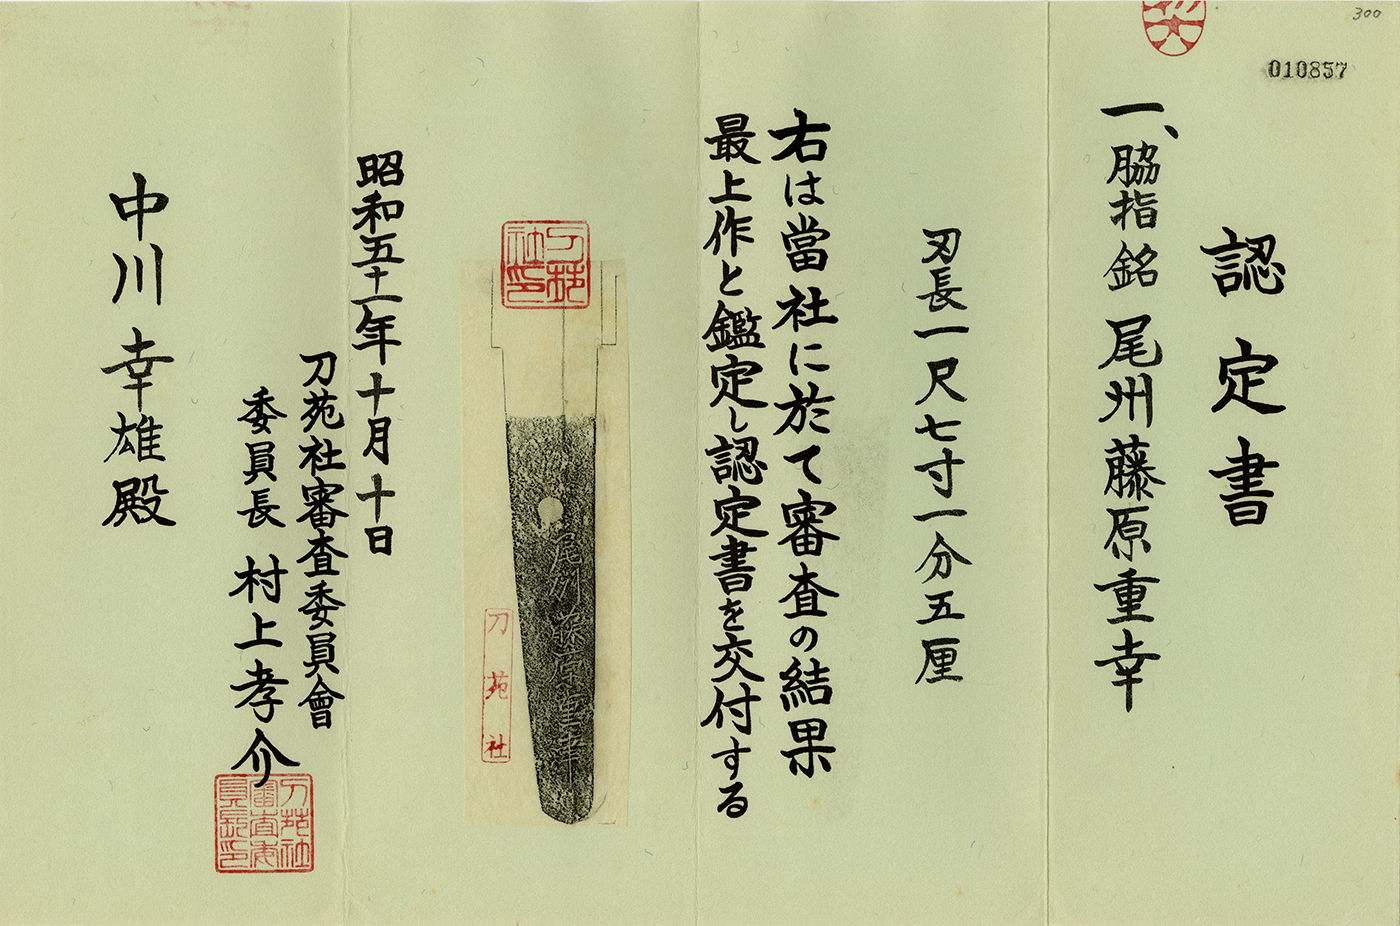 300
010857
認定書
一、脇指銘 尾州藤原重幸
刃長一尺七寸一分五厘
右は當社に於て審査の結果
最上作と鑑定し認定書を交付する
刀苑社印
尾州藤原重幸
刀苑社
昭和五十一年十月十日
刀苑社審査委員會
委員長 村上孝介
刀苑社審査委員長印
中川幸雄殿